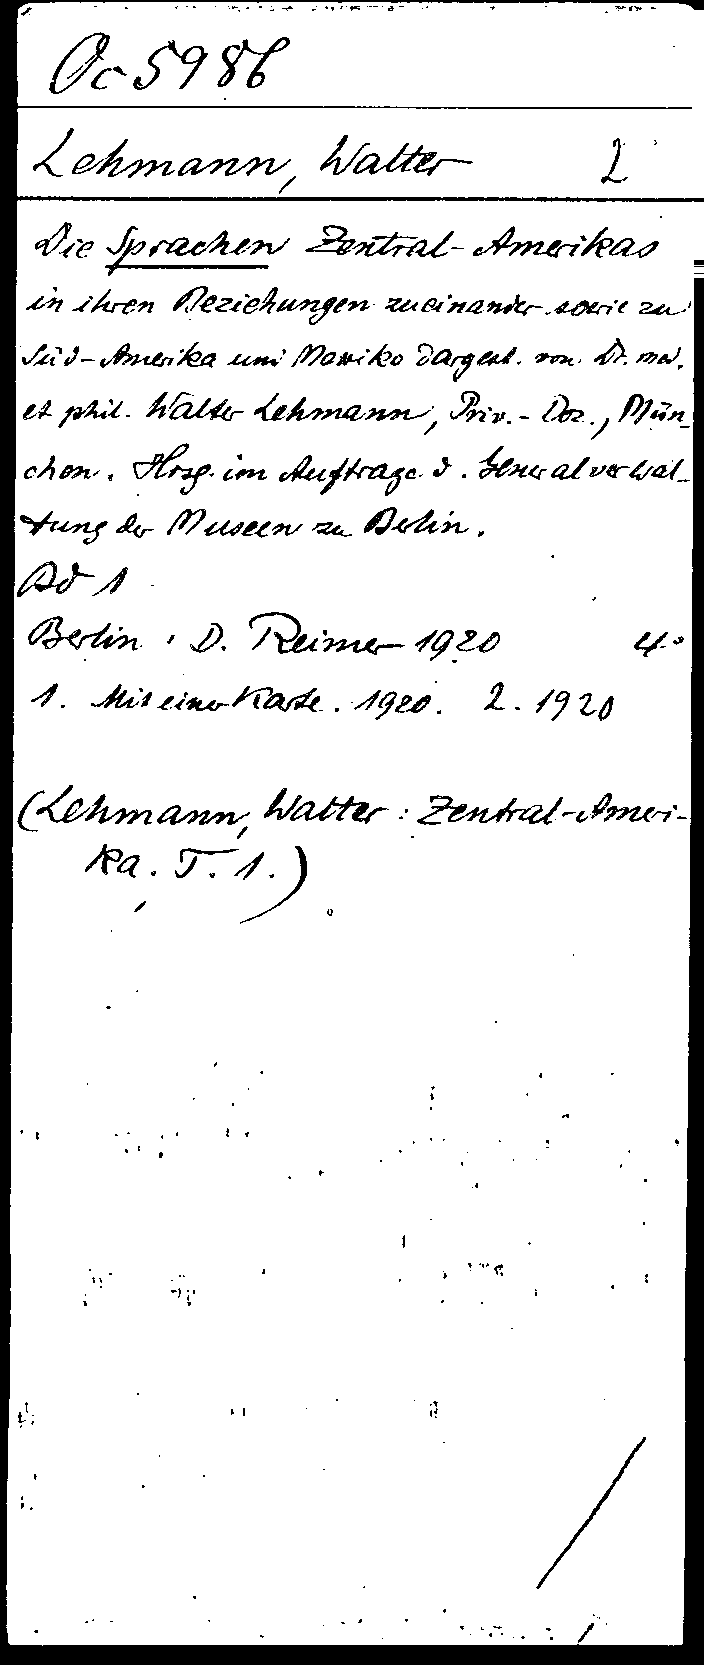 Oc 5986
Lehmann, Walter 2
Die Sprachen Zentral-Amerikas
in ihren Beziehungen zueinander sowie zu
Süd-Amerika und Mexiko dargest. von Dr. med.
et phil. Walter Lehmann, Priv.-Doz., Mün-
chen. Hrsg. im Auftrage d. Generalverwal-
tung der Museen zu Berlin.
Bd 1
Berlin: D. Reimer 1920 4°
1. Mit einer Karte. 1920. 2. 1920
(Lehmann, Walter: Zentral-Ameri-
ka. T. 1.)